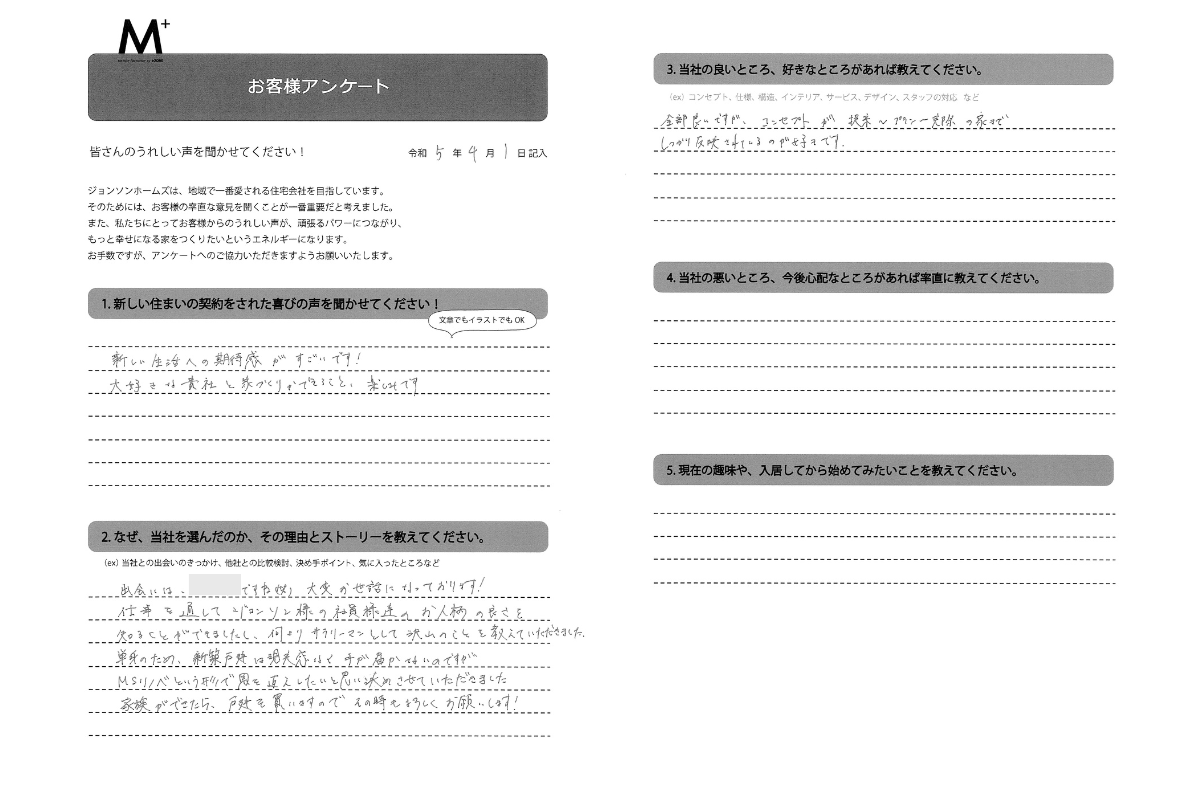 M+
お客様アンケート
皆さんのうれしい声を聞かせてください！
令和 5 年 4 月 1 日記入
ジョンソンホームズは、地域で一番愛される住宅会社を目指しています。
そのためには、お客様の率直な意見を聞くことが一番重要だと考えました。
また、私たちにとってお客様からのうれしい声が、頑張るパワーにつながり、
もっと幸せになる家をつくりたいというエネルギーになります。
お手数ですが、アンケートへのご協力いただきますようお願いいたします。
1. 新しい住まいの契約をされた喜びの声を聞かせてください！
文章でもイラストでも OK
新しい生活への期待感がすごいです！
大好きな貴社と家づくりができること、楽しみです
2. なぜ、当社を選んだのか、その理由とストーリーを教えてください。
（ex）当社との出会いのきっかけ、他社との比較検討、決め手ポイント、気に入ったところなど
出会いは、ですね 大変お世話になっております！
仕事を通してジョンソン様の社員様達のお人柄の良さを
知ることができましたし、何よりサラリーマンとして沢山のことを教えていただきました。
単身のため、新築戸建は現実感なく手が届かないのですが
MSリノベという形で恩を返したいと思い決めさせていただきました
家族ができたら、戸建を買いますのでその時もよろしくお願いします！
3. 当社の良いところ、好きなところがあれば教えてください。
（ex）コンセプト、仕様、構造、インテリア、サービス、デザイン、スタッフの対応 など
全部良いですが、コンセプトが提案〜プラン〜実際の家まで
しっかり反映されているのが好きです。
4. 当社の悪いところ、今後心配なところがあれば率直に教えてください。
5. 現在の趣味や、入居してから始めてみたいことを教えてください。